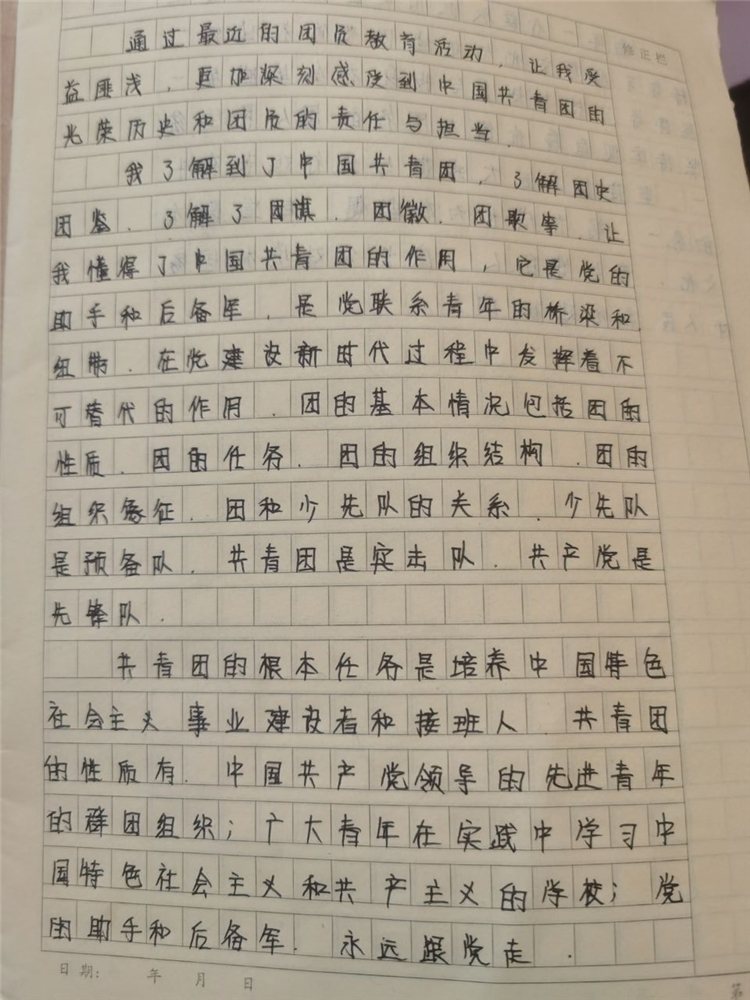 修正栏
通过最近的团员教育活动，让我受
益匪浅，更加深刻感受到中国共青团的
光荣历史和团员的责任与担当.
我了解到了中国共青团，了解团史
团鉴，了解了团旗、团徽、团歌等，让
我懂得了中国共青团的作用，它是党的
助手和后备军，是党联系青年的桥梁和
纽带，在党建设新时代过程中发挥着不
可替代的作用，团的基本情况包括团的
性质、团的任务、团的组织结构、团的
组织象征、团和少先队的关系、少先队
是预备队、共青团是突击队、共产党是
先锋队.
共青团的根本任务是培养中国特色
社会主义事业建设者和接班人 共青团
的性质有.中国共产党领导的先进青年
的群团组织；广大青年在实践中学习中
国特色社会主义和共产主义的学校；党
的助手和后备军.永远跟党走.
日期： 年 月 日
第